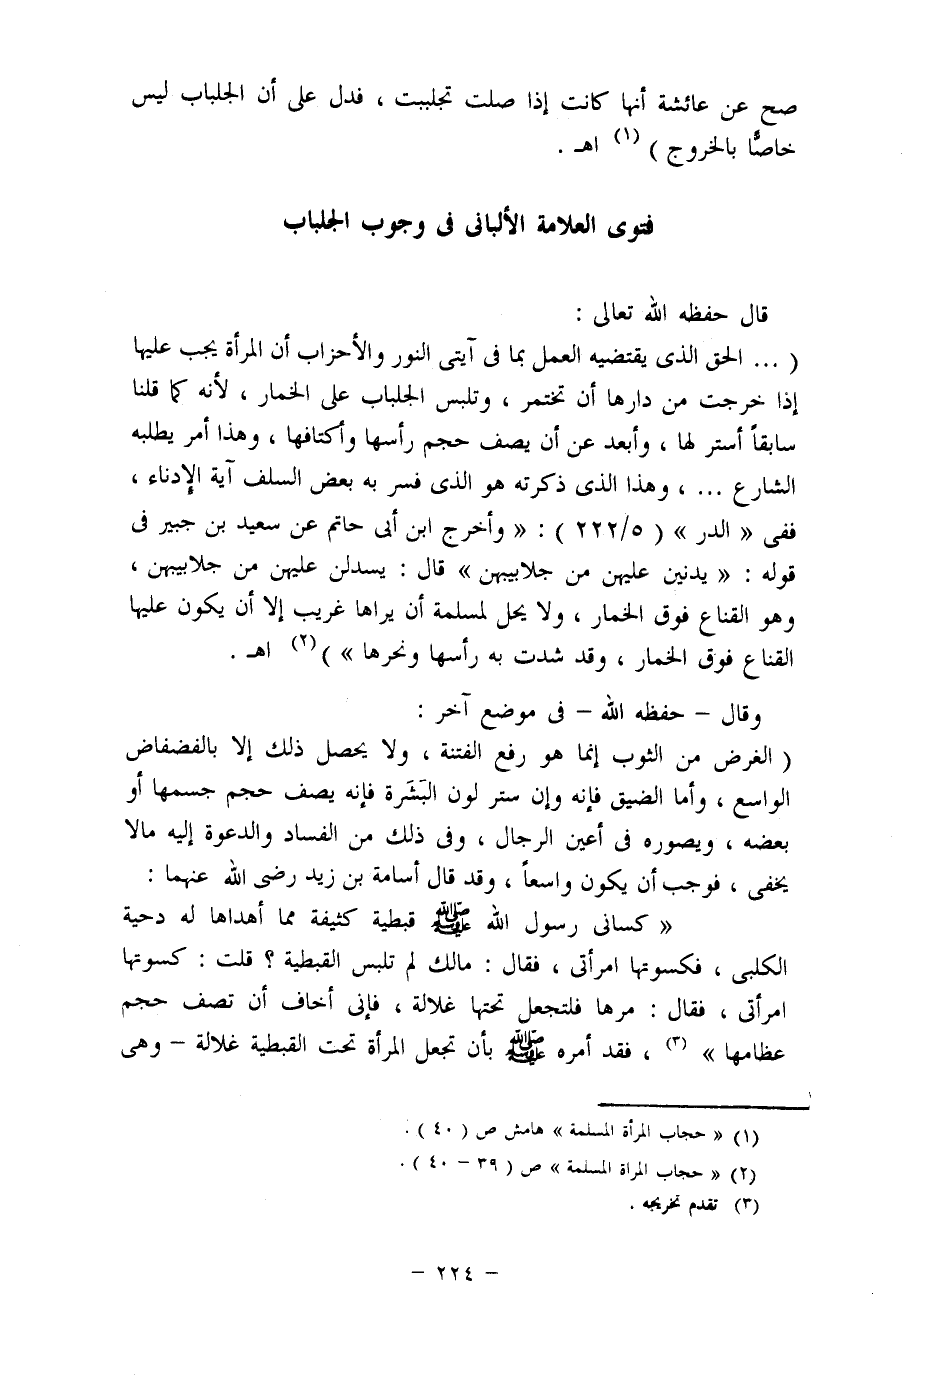 صح عن عائشة أنها كانت إذا صلت تجلببت ، فدل على أن الجلباب ليس
خاصًّا بالخروج ) (١) اهـ .
فتوى العلامة الألبانى فى وجوب الجلباب
قال حفظه الله تعالى :
( ... الحق الذى يقتضيه العمل بما فى آيتى النور والأحزاب أن المرأة يجب عليها
إذا خرجت من دارها أن تختمر ، وتلبس الجلباب على الخمار ، لأنه كما قلنا
سابقاً أستر لها ، وأبعد عن أن يصف حجم رأسها وأكتافها ، وهذا أمر يطلبه
الشارع ... ، وهذا الذى ذكرته هو الذى فسر به بعض السلف آية الإدناء ،
ففى « الدر » ( ٢٢٢/٥ ) : « وأخرج ابن أبى حاتم عن سعيد بن جبير فى
قوله : « يدنين عليهن من جلابيبهن » قال : يسدلن عليهن من جلابيبهن ،
وهو القناع فوق الخمار ، ولا يحل لمسلمة أن يراها غريب إلا أن يكون عليها
القناع فوق الخمار ، وقد شدت به رأسها ونحرها » )(٢) اهـ .
وقال – حفظه الله – فى موضع آخر :
( الغرض من الثوب إنما هو رفع الفتنة ، ولا يحصل ذلك إلا بالفضفاض
الواسع ، وأما الضيق فإنه وإن ستر لون البَشَرة فإنه يصف حجم جسمها أو
بعضه ، ويصوره فى أعين الرجال ، وفى ذلك من الفساد والدعوة إليه مالا
يخفى ، فوجب أن يكون واسعاً ، وقد قال أسامة بن زيد رضى الله عنهما :
« كسانى رسول الله ﷺ قبطية كثيفة مما أهداها له دحية
الكلبى ، فكسوتها امرأتى ، فقال : مالك لم تلبس القبطية ؟ قلت : كسوتها
امرأتى ، فقال : مرها فلتجعل تحتها غلالة ، فإنى أخاف أن تصف حجم
عظامها » (٣) ، فقد أمره ﷺ بأن تجعل المرأة تحت القبطية غلالة – وهى
(١) « حجاب المرأة المسلمة » هامش ص ( ٤٠ ) .
(٢) « حجاب المراة المسلمة » ص ( ٣٩ – ٤٠ ) .
(٣) تقدم تخريجه .
– ٢٢٤ –